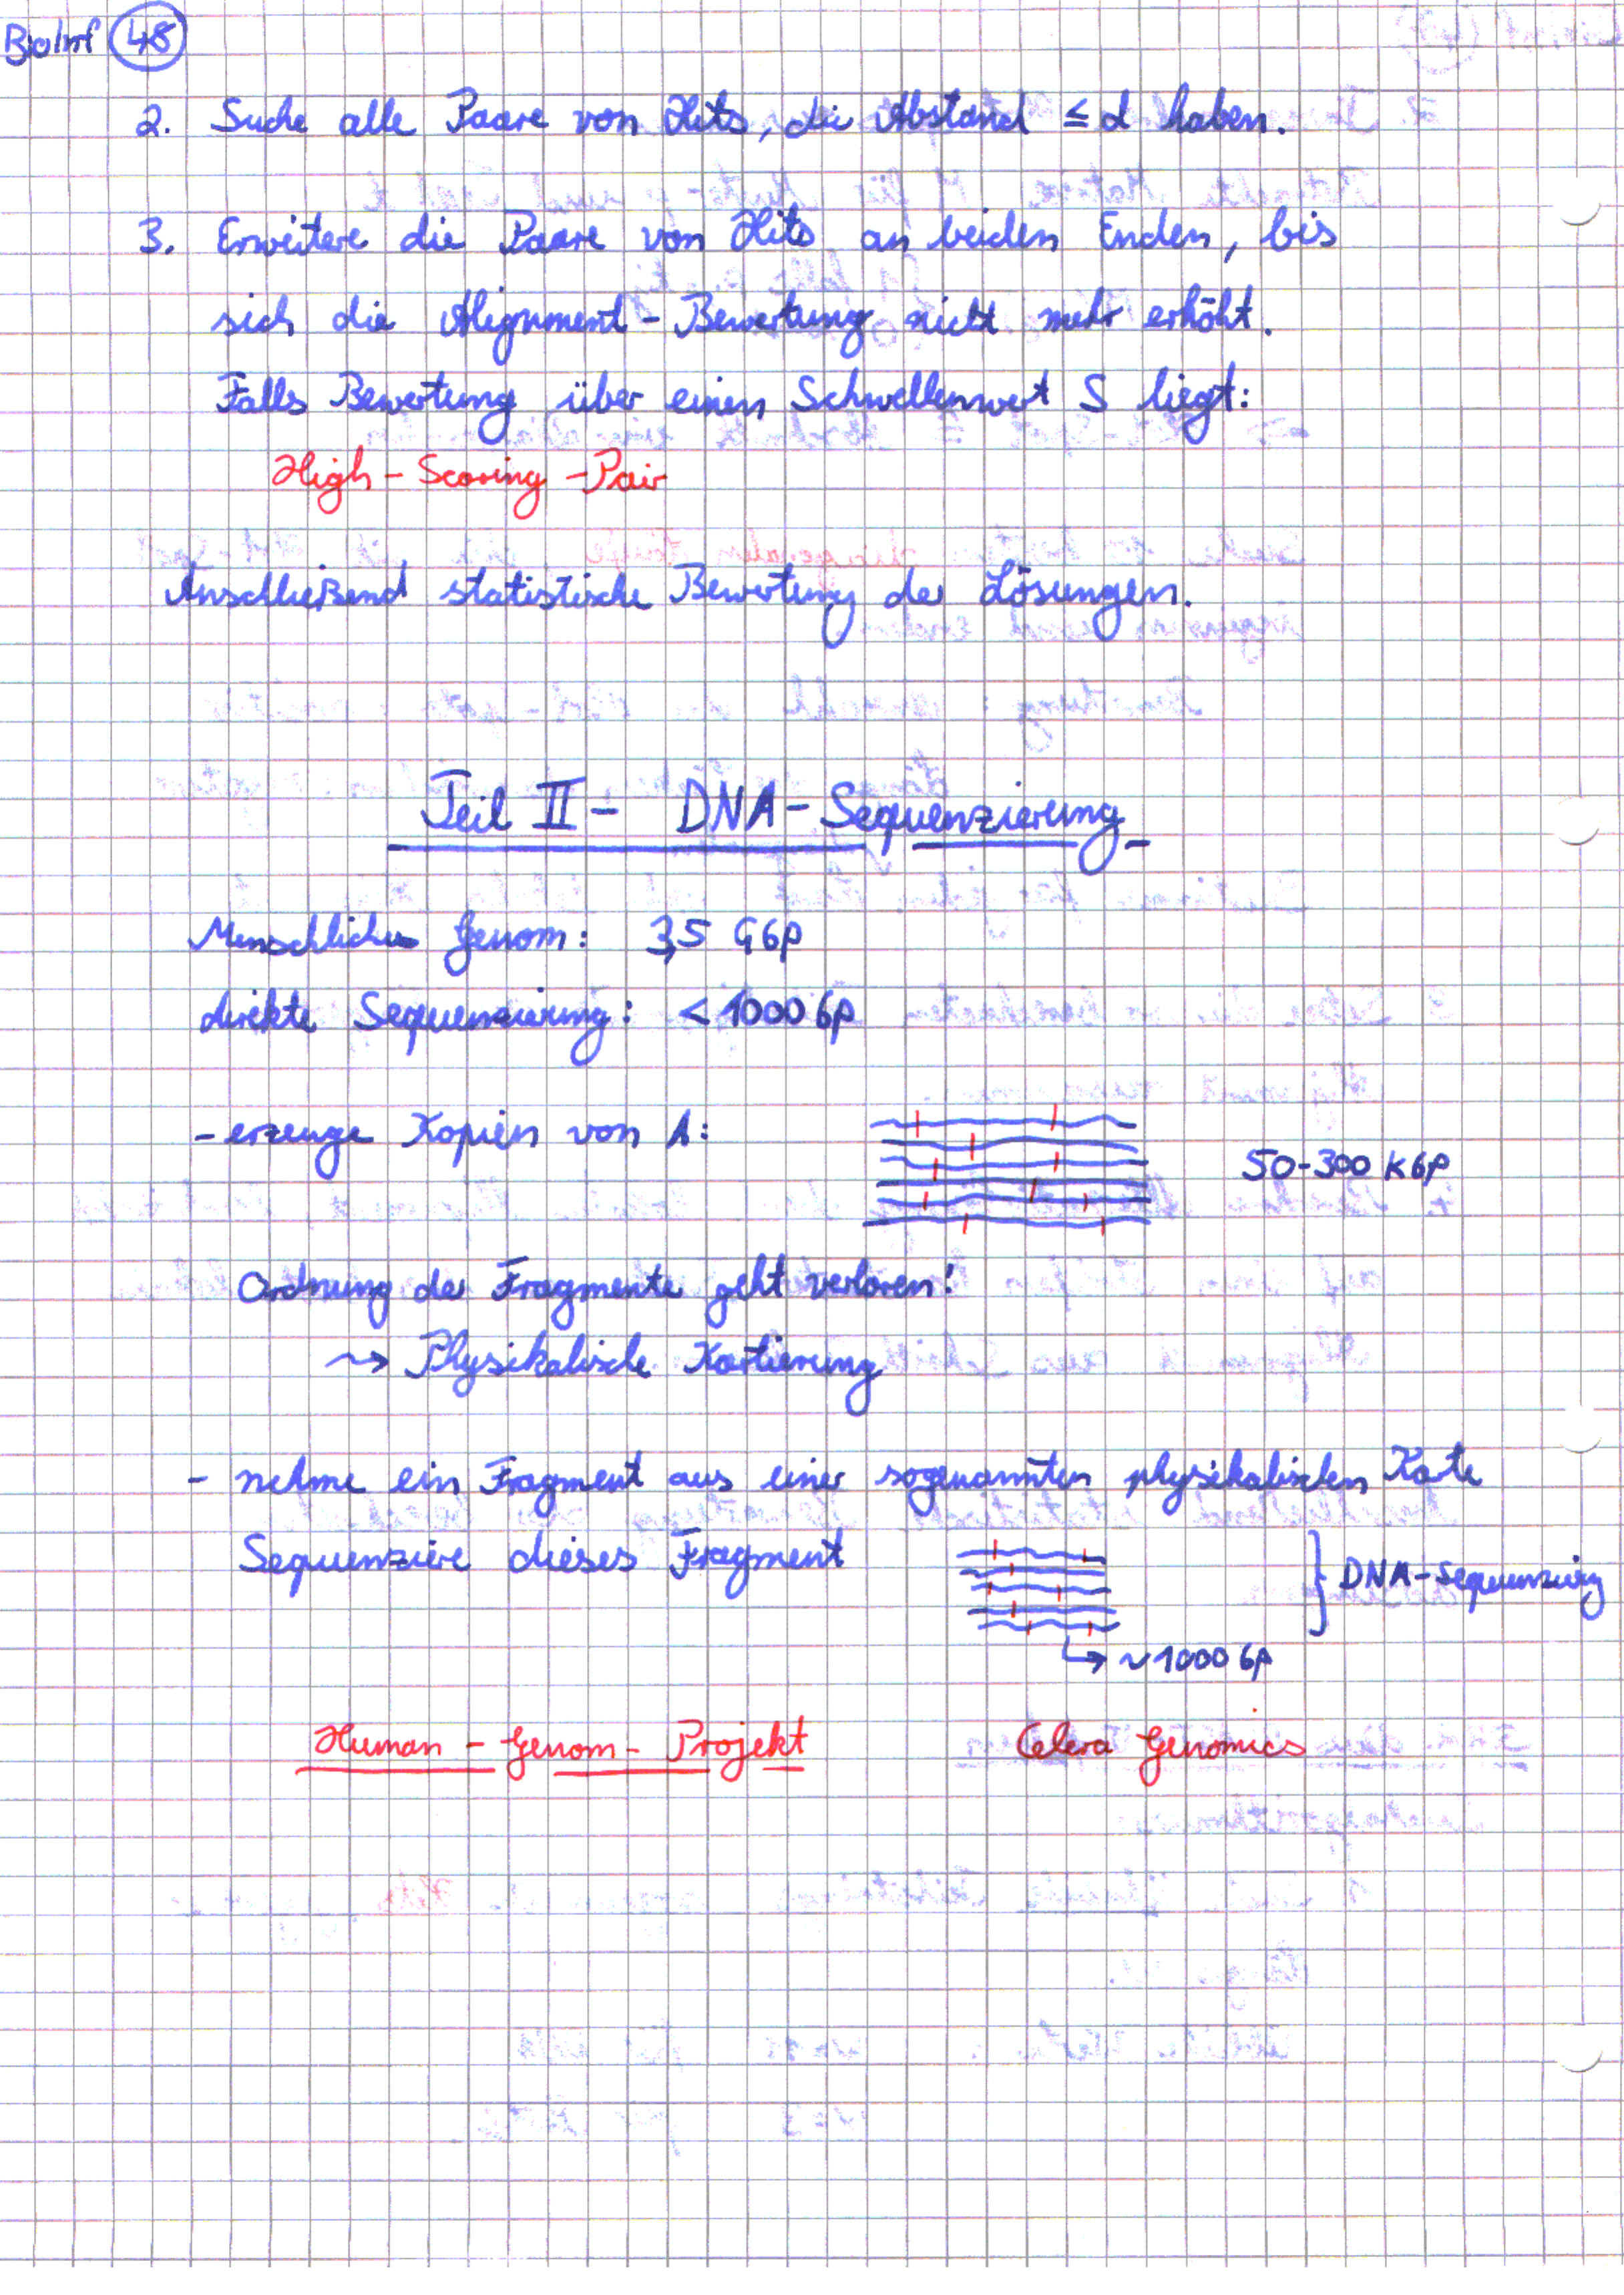 BioInf 48
2. Suche alle Paare von Hits, die Abstand ≤ d haben.
3. Erweitere die Paare von Hits an beiden Enden, bis
sich die Alignment-Bewertung nicht mehr erhöht.
Falls Bewertung über einen Schwellenwert S liegt:
High-Scoring-Pair
Anschließend statistische Bewertung der Lösungen.
Teil II - DNA-Sequenzierung
Menschliches Genom: 3,5 Gbp
direkte Sequenzierung: < 1000 bp
- erzeuge Kopien von A:
50-300 kbp
Ordnung der Fragmente geht verloren!
⇝ Physikalische Kartierung
- nehme ein Fragment aus einer sogenannten physikalischen Karte
Sequenziere dieses Fragment
} DNA-Sequenzierg
↳ ~1000 bp
Human-Genom-Projekt Celera Genomics